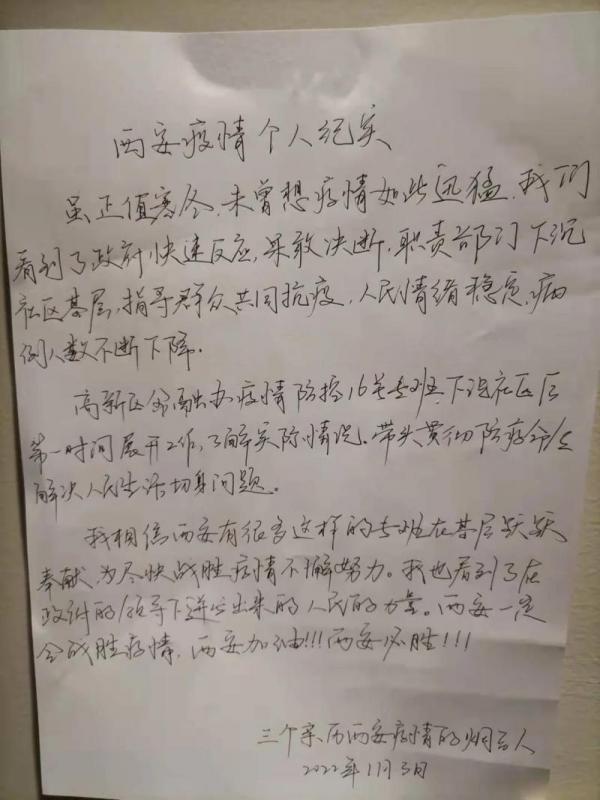 西安疫情个人纪实
虽正值寒冬,未曾想疫情如此迅猛,我们
看到了政府快速反应,果敢决断,职责部门下沉
社区基层,指导群众共同抗疫,人民情绪稳定,病
例人数不断下降.
高新区金融办疫情防控16号专班,下沉社区后
第一时间展开工作,了解实际情况。带头贯彻防疫命令
解决人民生活切身问题。
我相信西安有很多这样的专班在基层默默
奉献,为尽快战胜疫情不懈努力。我也看到了在
政府的领导下迸发出来的人民的力量。西安一定
会战胜疫情,西安加油!!!西安必胜!!!
三个亲历西安疫情的烟台人
2022年1月3日